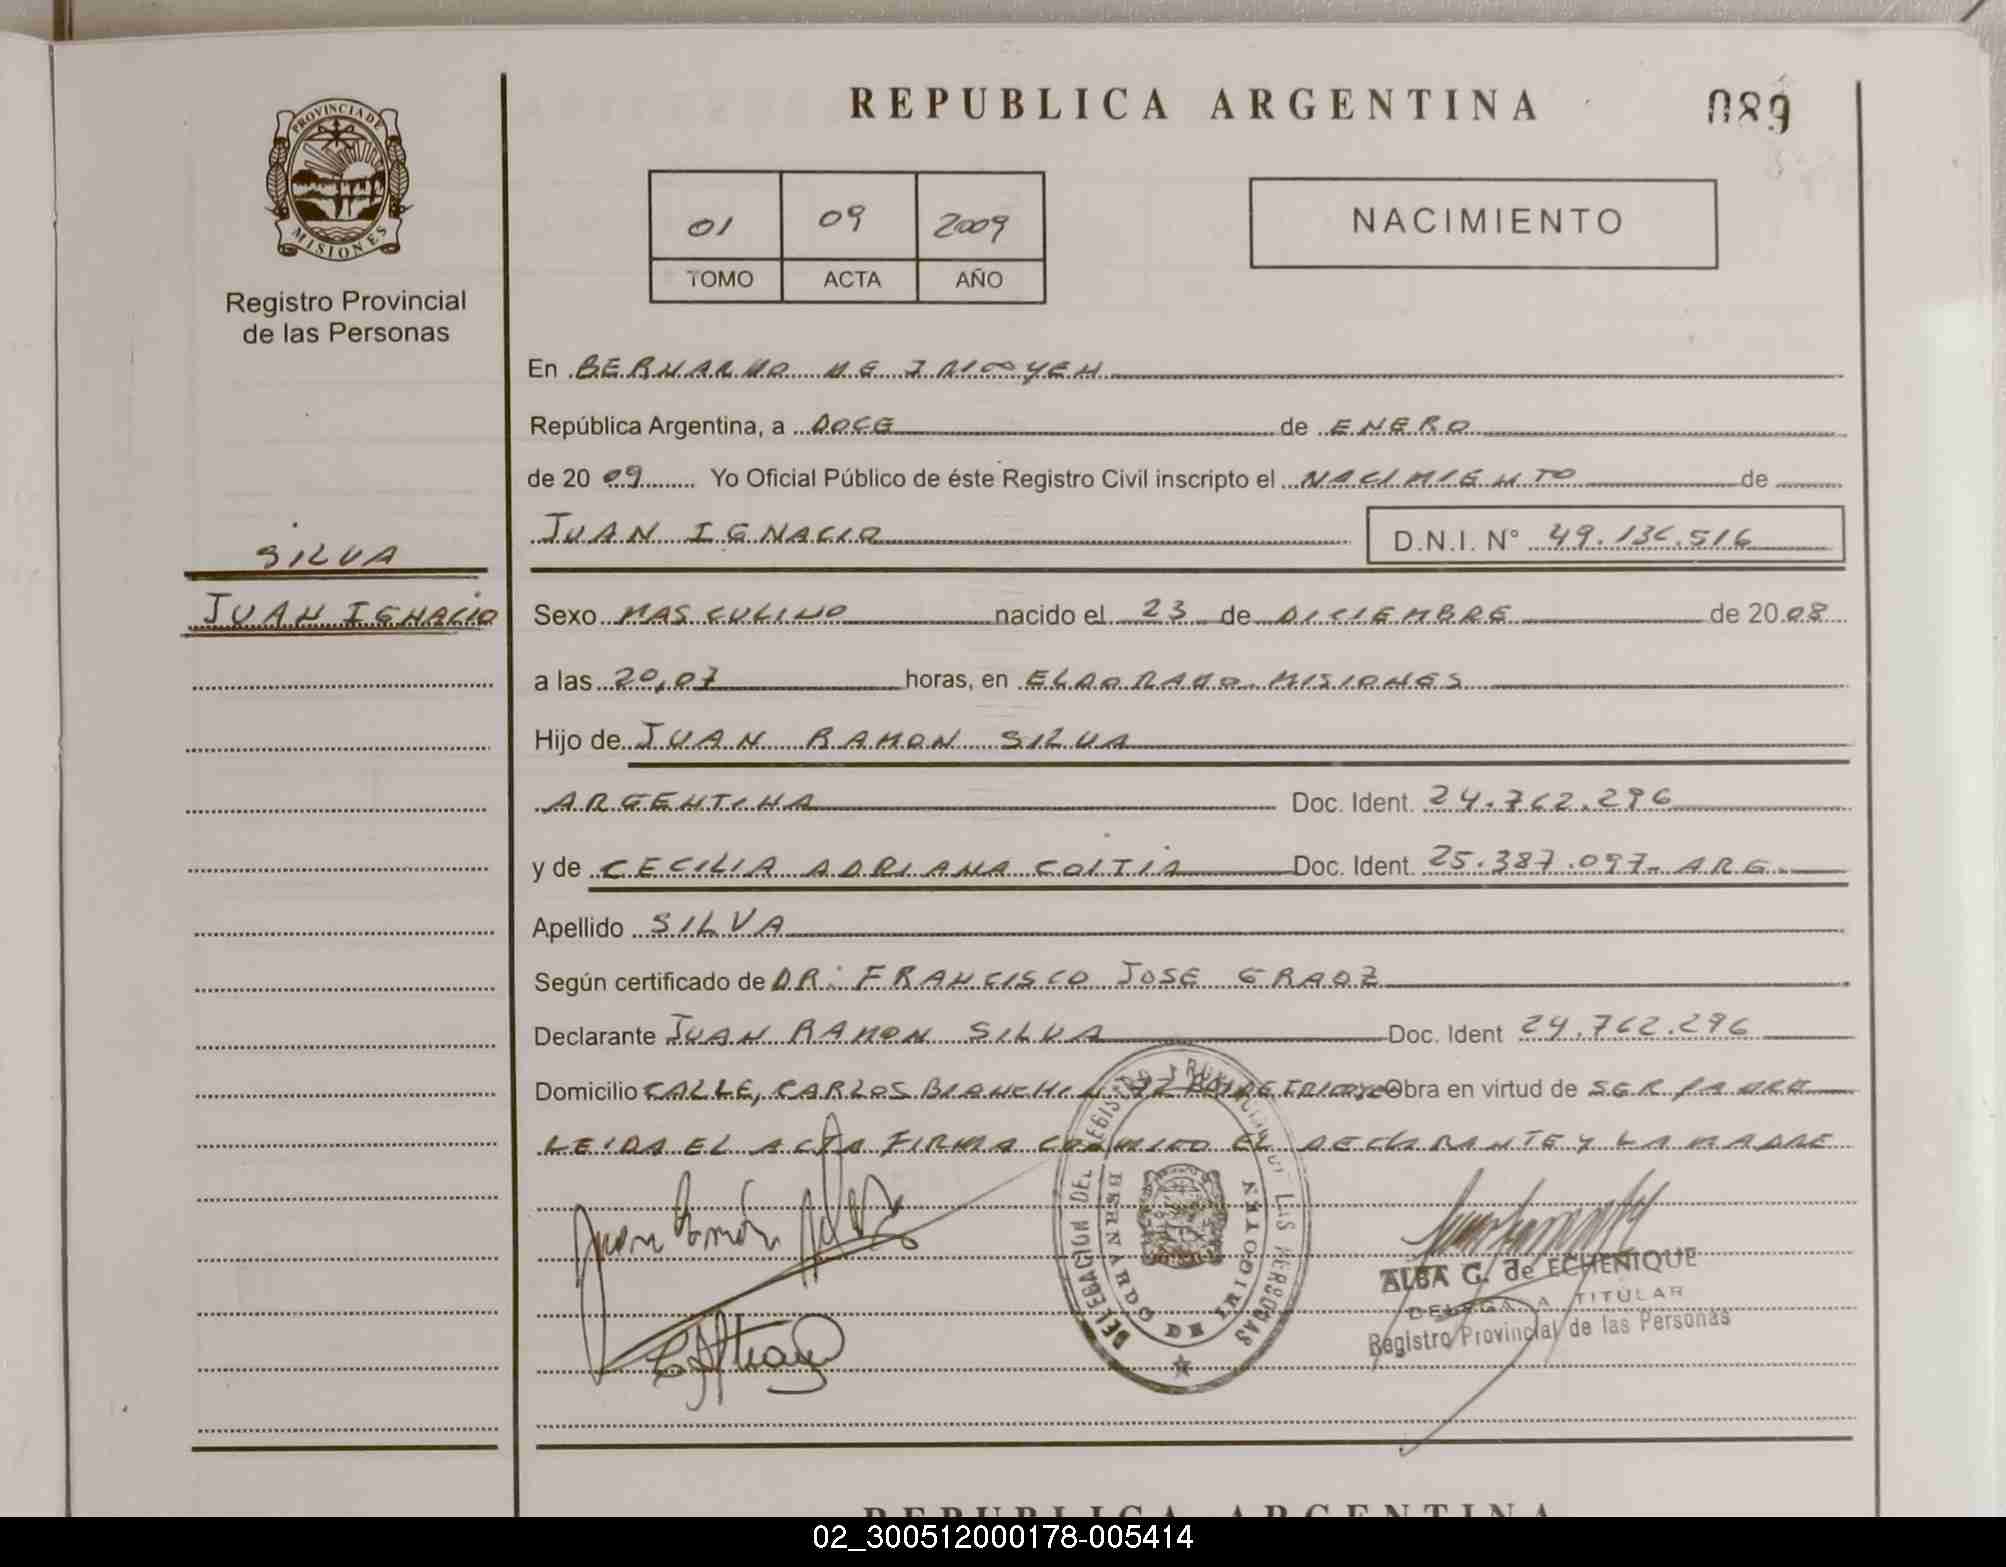 REPUBLICA ARGENTINA
089
PROVINCIA DE
MISIONES
Registro Provincial
de las Personas
01 09 2009
TOMO ACTA AÑO
NACIMIENTO
En BERNARDO DE IRIGOYEN
República Argentina, a DOCE de ENERO
de 2009 Yo Oficial Público de éste Registro Civil inscripto el NACIMIENTO de
JUAN IGNACIO D.N.I. N° 49.136.516
SILVA
JUAN IGNACIO
Sexo MASCULINO nacido el 23 de DICIEMBRE de 2008
a las 20,07 horas, en ELDORADO. MISIONES
Hijo de JUAN RAMON SILVA
ARGENTINA Doc. Ident. 24.762.296
y de CECILIA ADRIANA COITIA Doc. Ident. 25.387.097- ARG.
Apellido SILVA
Según certificado de DR: FRANCISCO JOSE GRAOZ
Declarante JUAN RAMON SILVA Doc. Ident 24.762.296
Domicilio CALLE, CARLOS BIANCHI Obra en virtud de SER PADRE
LEIDA EL ACTA FIRMA CONMIGO EL DECLARANTE Y LA MADRE
Juan Ramón Silva
DELEGACION DEL REGISTRO PROVINCIAL DE LAS PERSONAS
BERNARDO DE IRIGOYEN
ALBA G. de ECHENIQUE
DELEGADA TITULAR
Registro Provincial de las Personas
REPUBLICA ARGENTINA
02_300512000178-005414